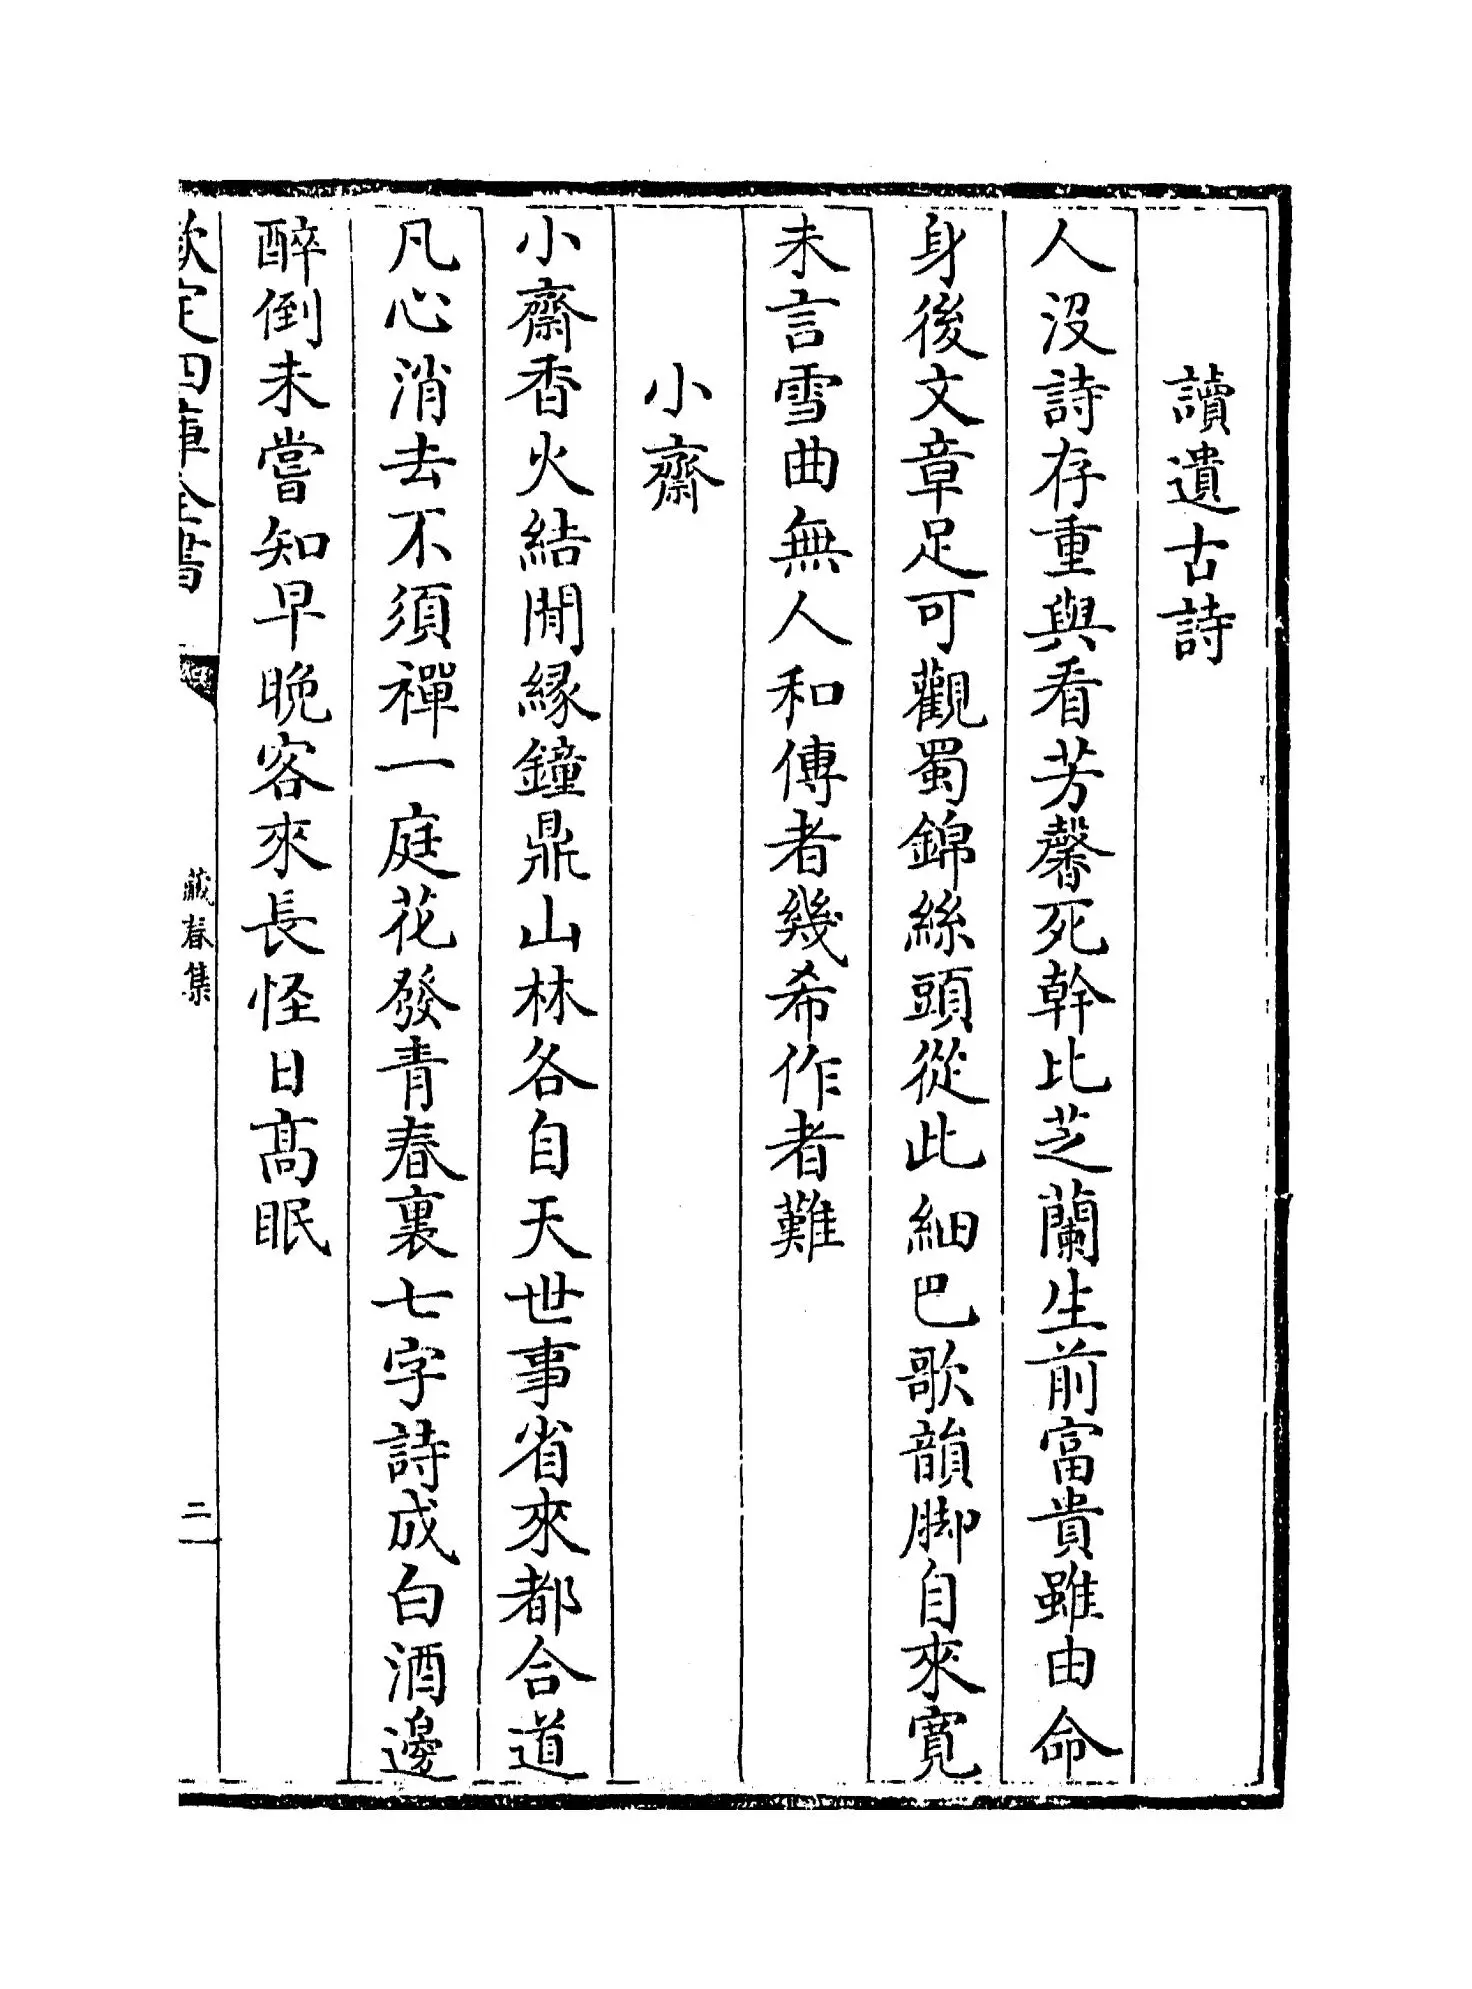 讀遺古詩
人沒詩存重與看芳馨死幹比芝蘭生前富貴雖由命
身後文章足可觀蜀錦絲頭從此細巴歌韻脚自來寛
未言雪曲無人和傳者幾希作者難
小齋
小齋香火結閒縁鐘鼎山林各自天世事省來都合道
凡心消去不須禪一庭花發青春裏七字詩成白酒邊
醉倒未嘗知早晩客來長怪日髙眠
欽定四庫全書
藏春集
二